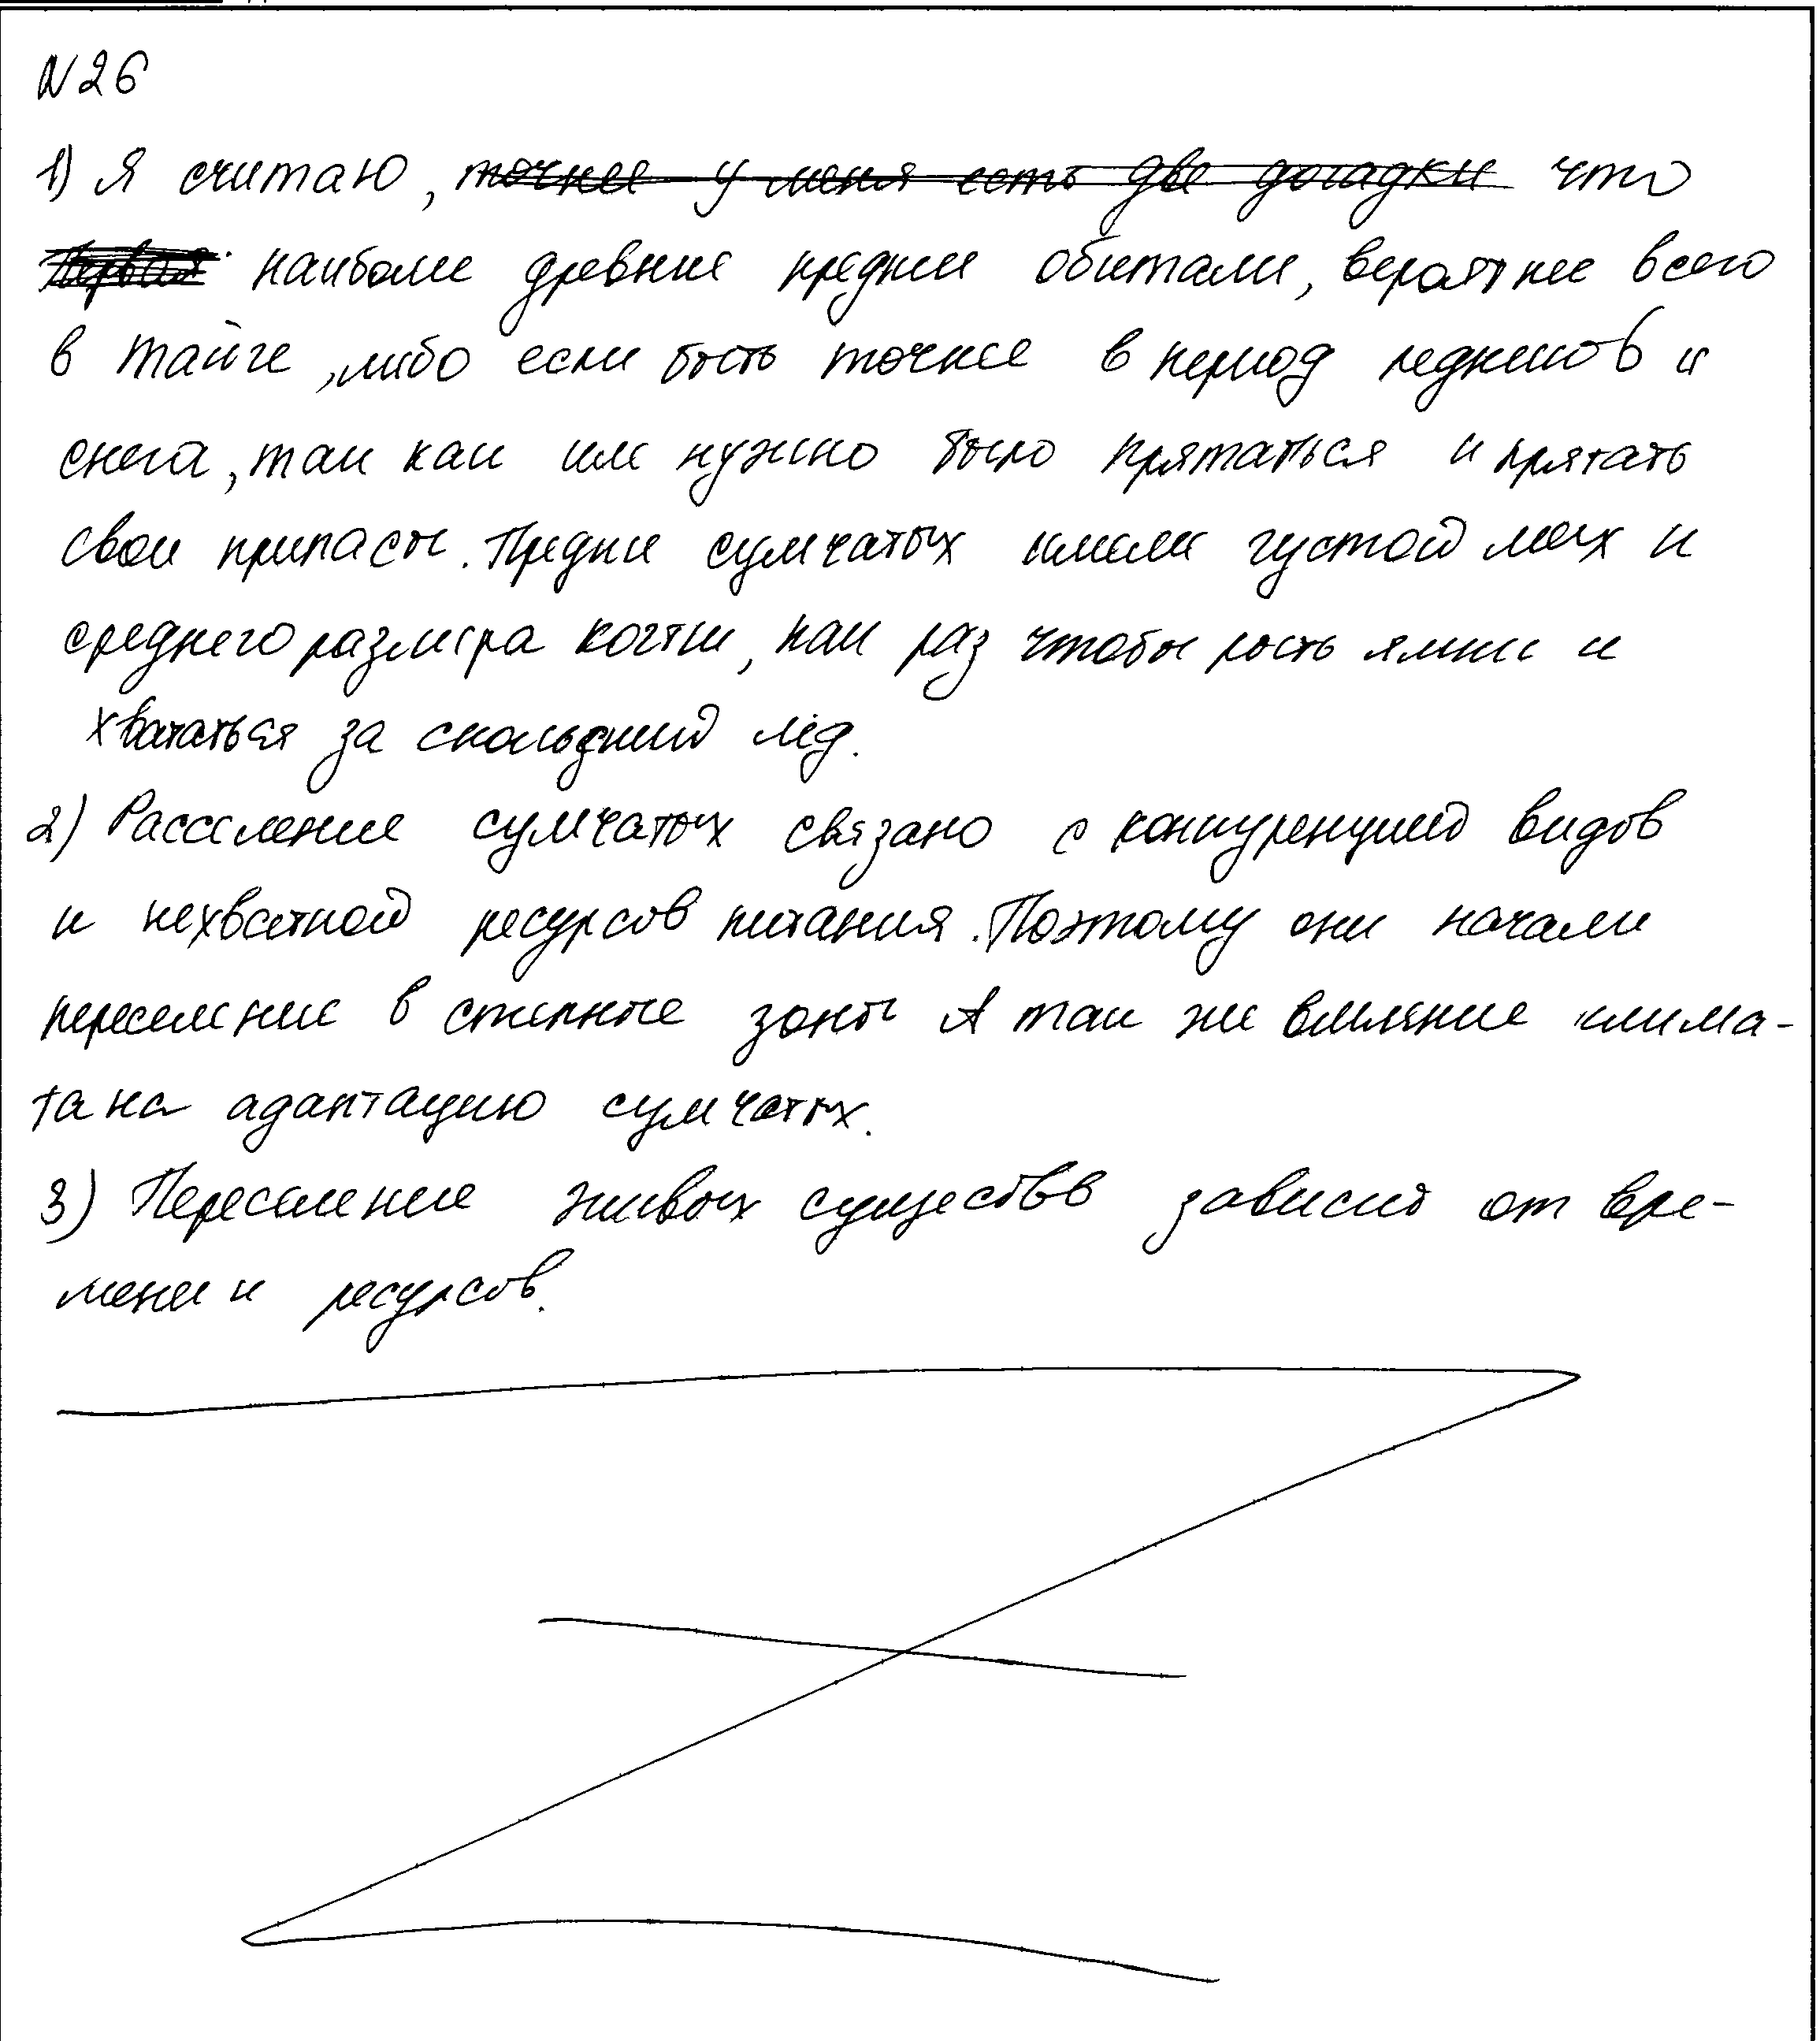 N26
1) Я считаю, точнее у меня есть две догадки что
Первая наиболее древние предки обитали, вероятнее всего
в тайге, либо если быть точнее в период ледников и
снега, так как им нужно было прятаться и прятать
свои припасы. Предки сумчатых имели густой мех и
среднего размера когти, как раз чтобы рыть ямки и
хвататься за скользкий лёд.
2) Расселение сумчатых связано с конкуренцией видов
и нехваткой ресурсов питания. Поэтому они начали
переселение в степные зоны А так же влияние клима-
та на адаптацию сумчатых.
3) Переселение живых существ зависит от вре-
мени и ресурсов.